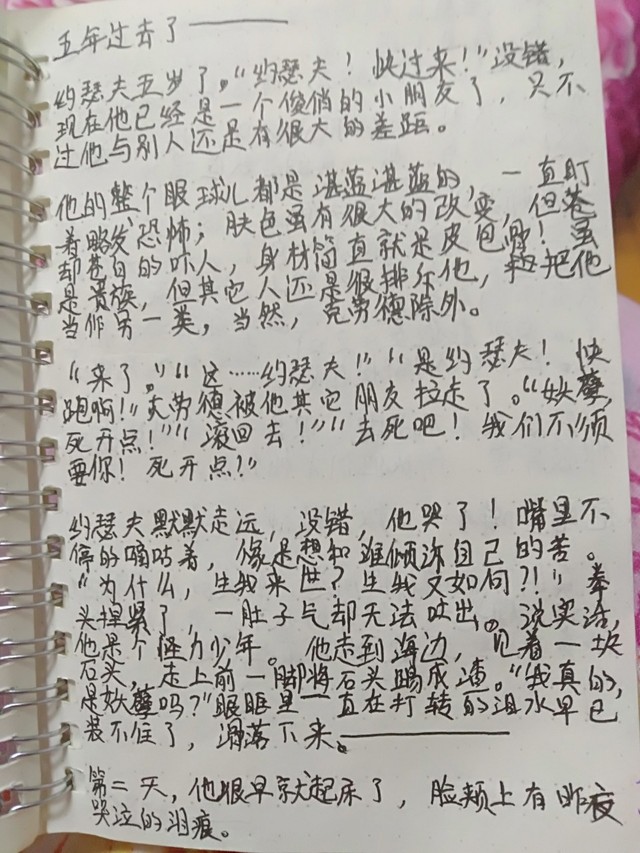 五年过去了————
约瑟夫五岁了。“约瑟夫！快过来！”没错，
现在他已经是一个俊俏的小朋友了，只不
过他与别人还是有很大的差距。
他的整个眼球儿都是湛蓝湛蓝的，一直盯
着略发恐怖；肤色虽有很大的改变，但苍
却苍白的吓人，身材简直就是皮包骨！虽
是贵族，但其它人还是很排斥他，把他
当作另一类，当然，克劳德除外。
“来了。”“这……约瑟夫！”“是约瑟夫！快
跑啊！”克劳德被他其它朋友拉走了。“妖孽，
死开点！”“滚回去！”“去死吧！我们不须
要你！死开点！”
约瑟夫默默走远，没错，他哭了！嘴里不
停的嘀咕着，像是想和谁倾诉自己的苦。
“为什么，生我来世？生我又如何？！”拳
头捏紧了，一肚子气却无法吐出。说实话，
他是个怪力少年。他走到海边，见着一块
石头，走上前一脚将石头踢成渣。“我真的，
是妖孽吗？”眼眶里一直在打转的泪水早已
装不住了，滑落下来。————
第二天，他很早就起床了，脸颊上有昨夜
哭泣的泪痕。